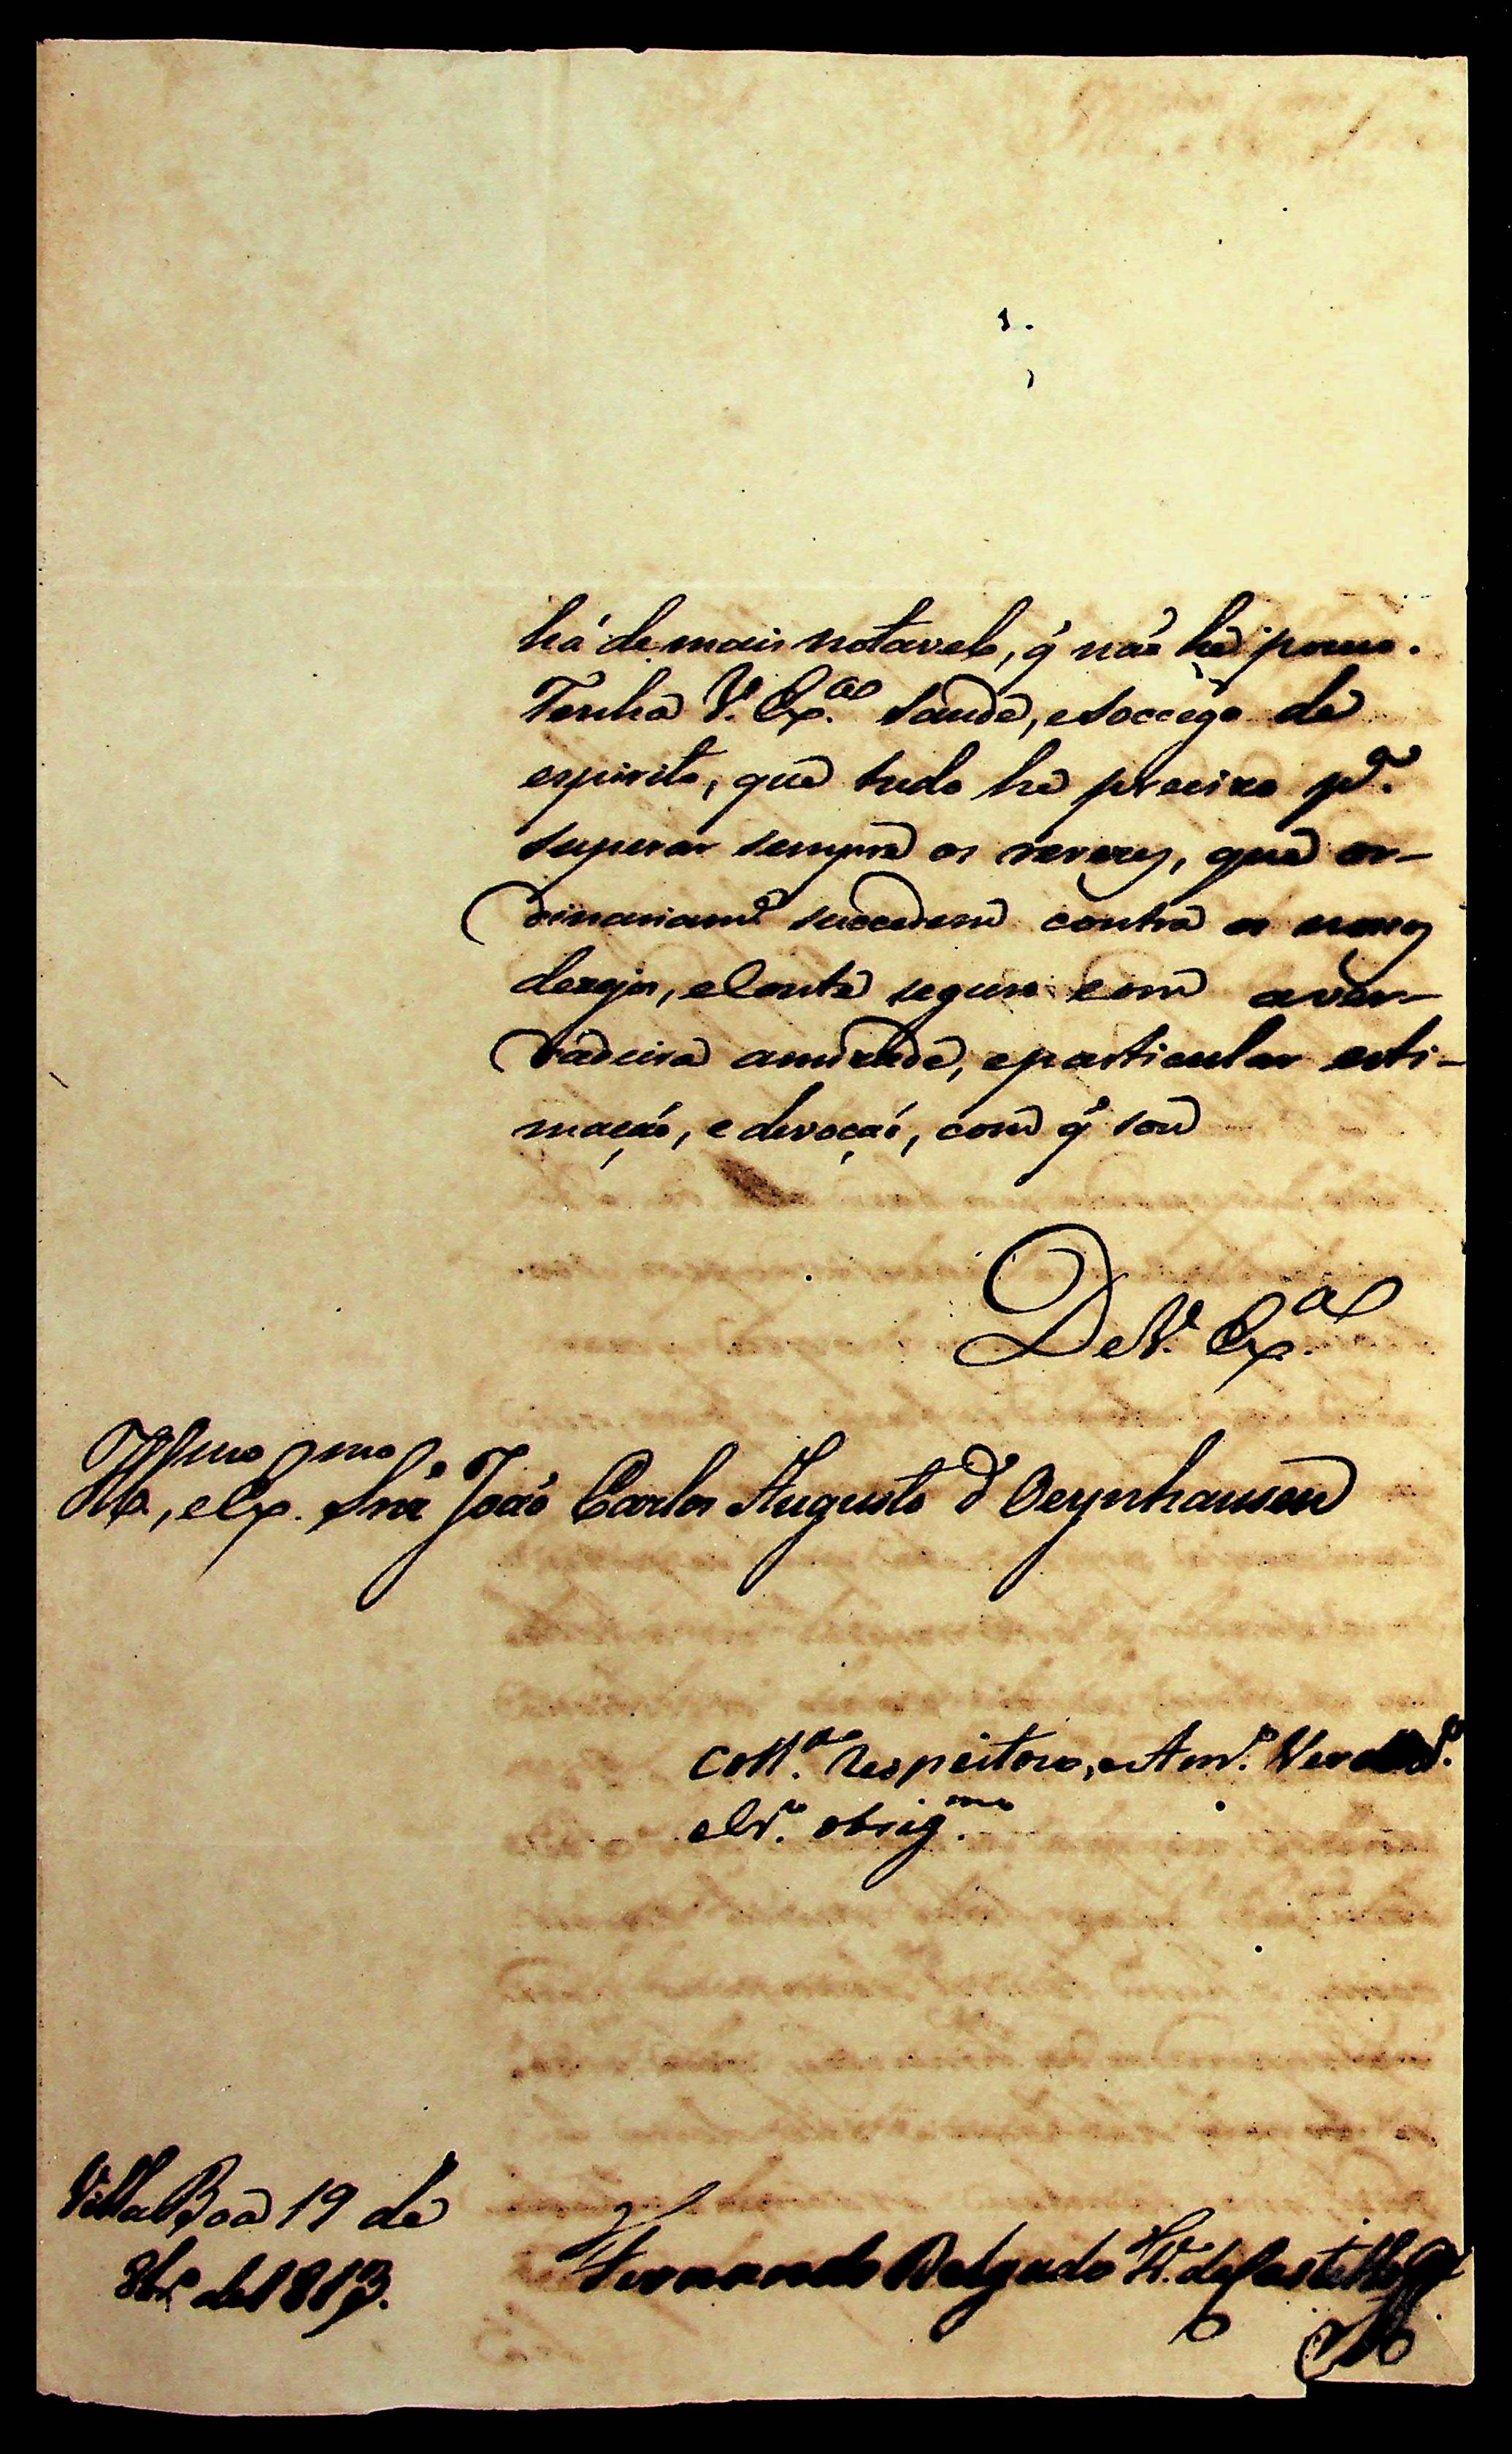 há de mais notavel, q̃ não he pouco.
Tenha V. Ex.ª saude, e soccego de
espirito, que tudo he precizo p.ª
superar sempre os revezes, que or-
dinariam.e succedem contra os nossos
dezejos, e Conte seguro com a ver-
dadeira amizade, e particular esti-
mação, e devoção, com q̃ sou
De V. Ex.ª
Ill.mo, e Ex.mo Snr. João Carlos Augusto d'Oeynhausen
respeitozo, e Am.º Verd.º
e Cr.º obrig.mo
Villa Boa 19 de
8br.º de 1813.
Fernando Delgado Fr. de Castilho